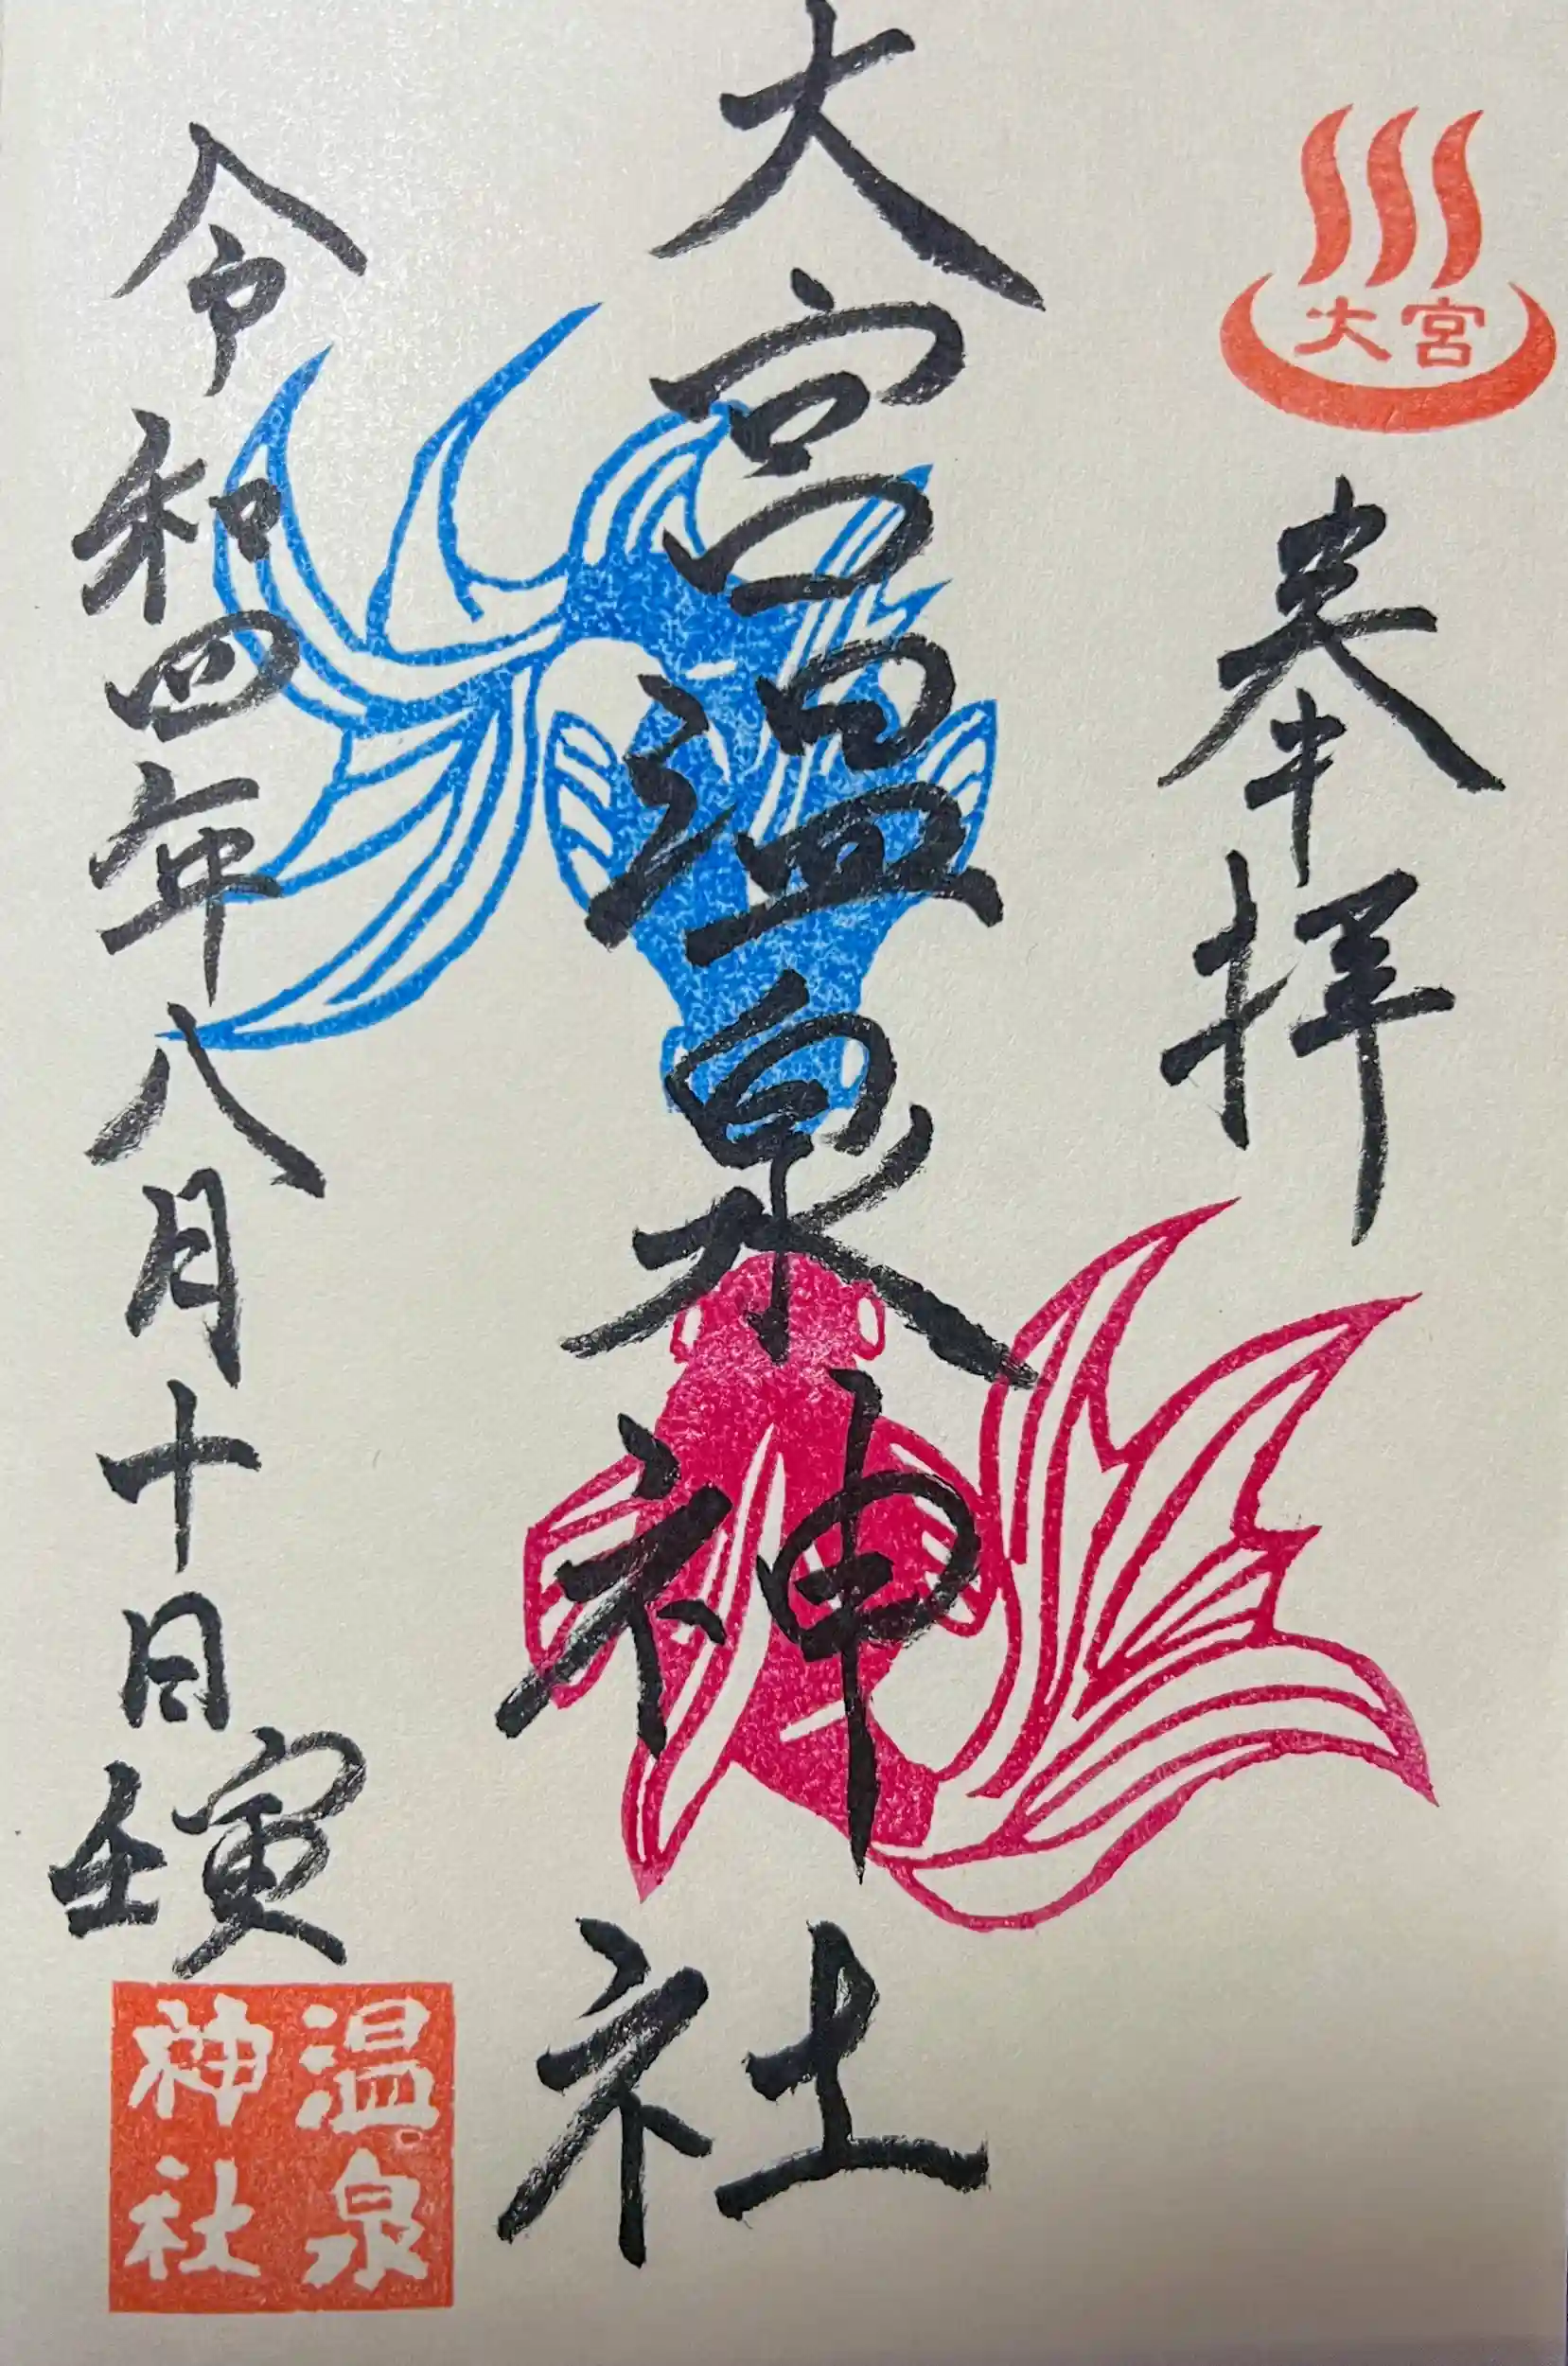 大宮
奉拝
大宮温泉神社
令和四年八月十日壬寅
温泉
神社